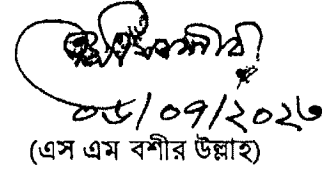 ০৬/০৭/২০২৬
(এস এম বশীর উল্লাহ)